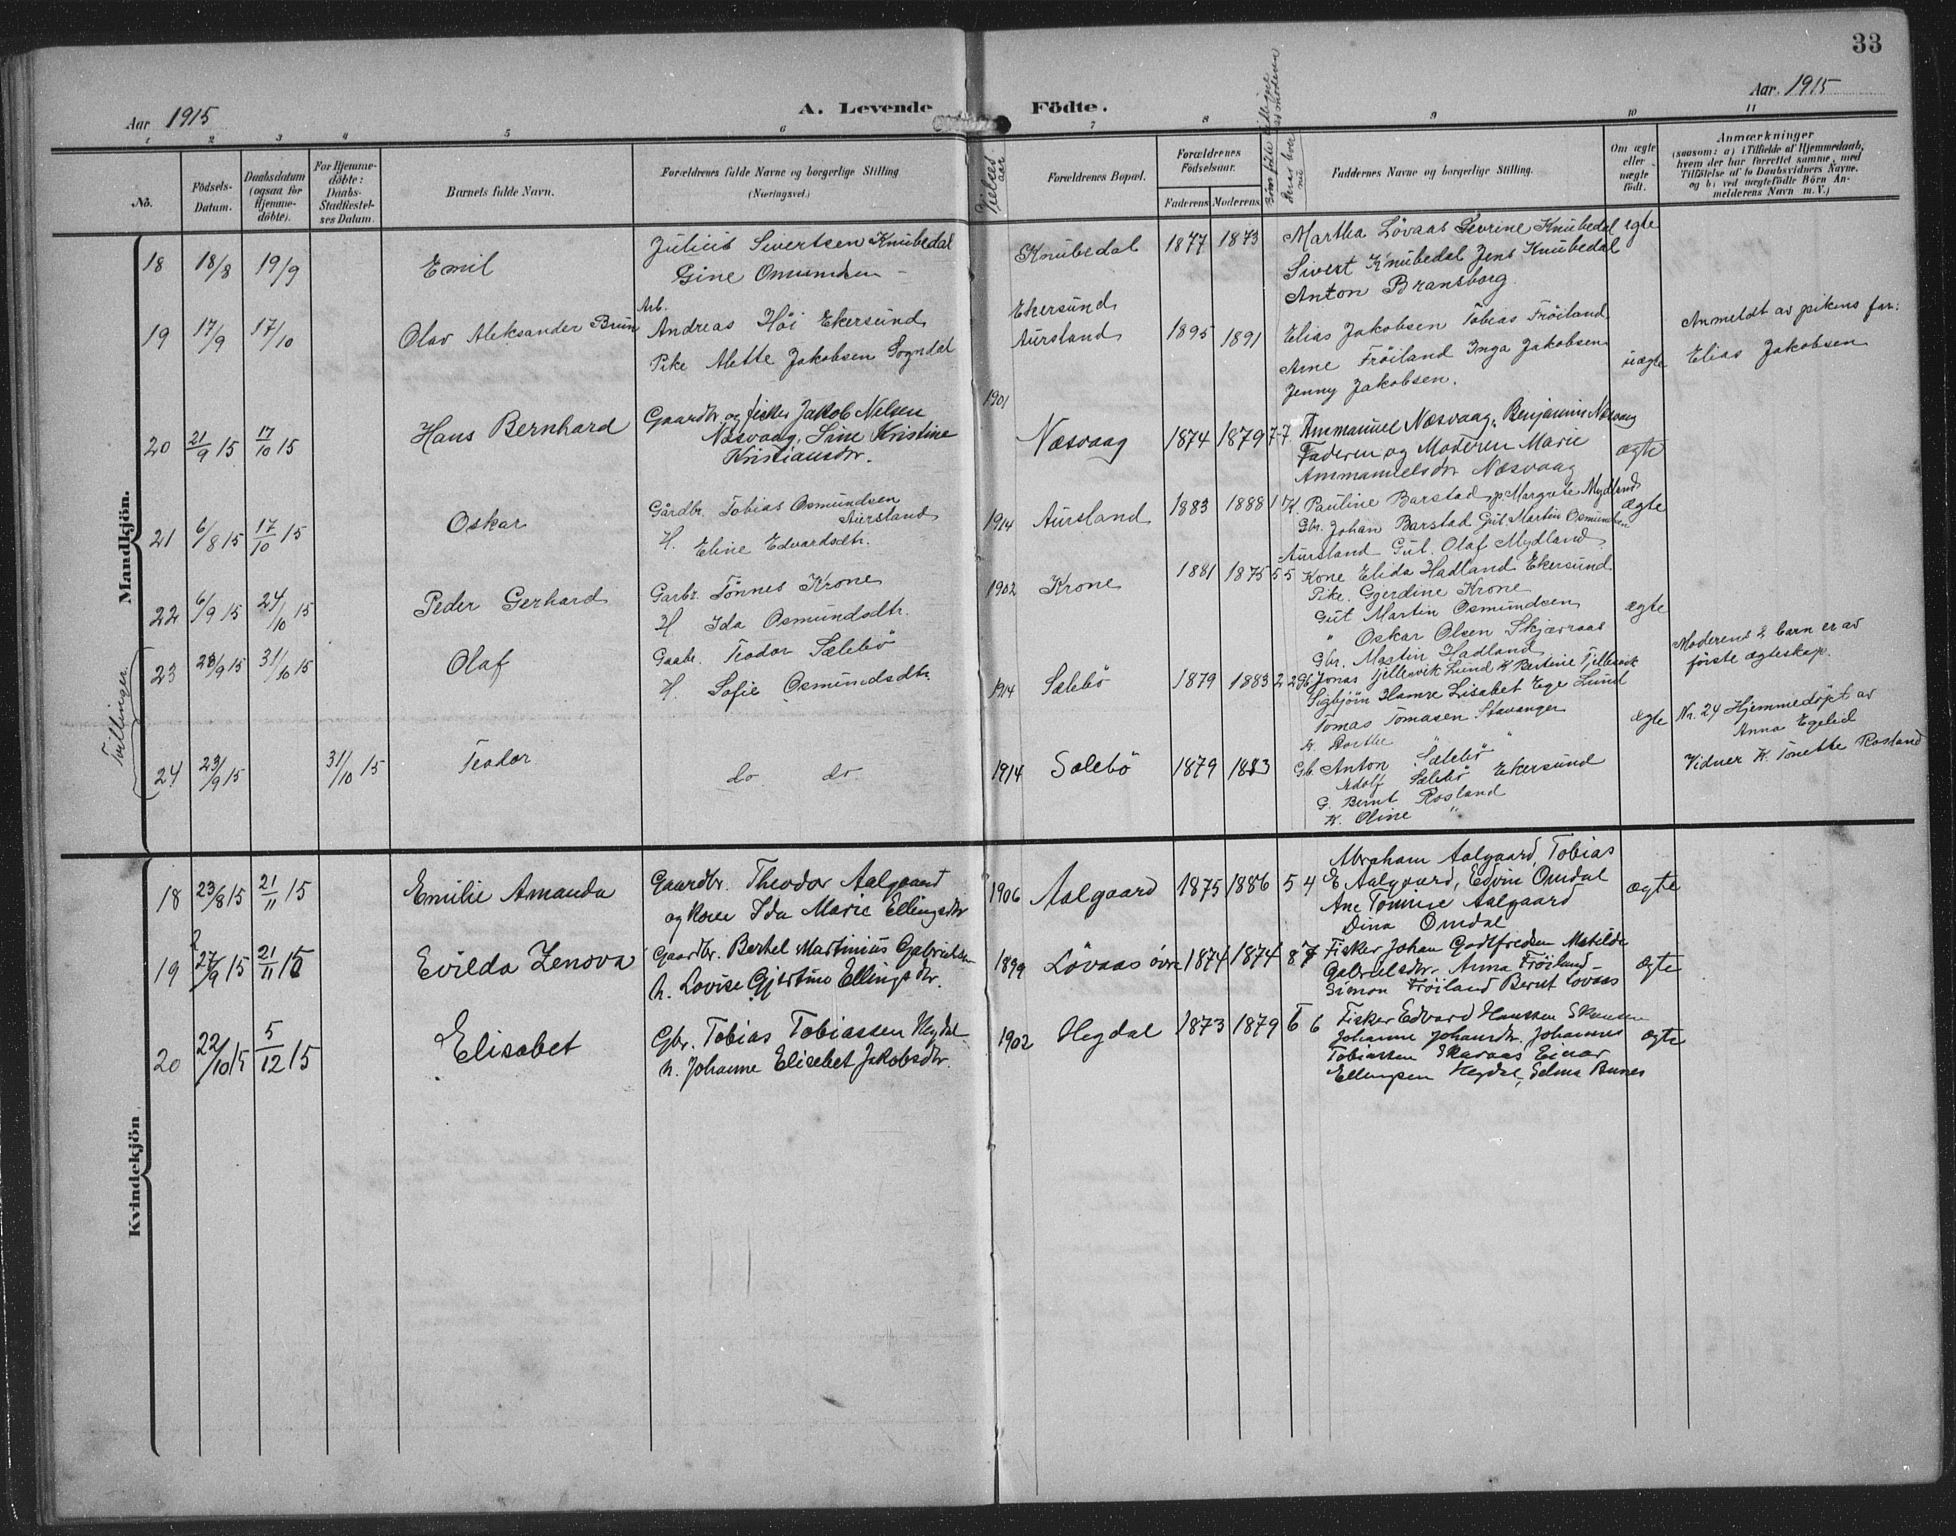 33
Aar 1915
A. Levende Födte.
Aar 1915
1 2 3 4 5 6 7 8 9 10 11
No.
Födsels-Datum.
Daabsdatum (ogsaa for Hjemme-döbte).
For Hjemme-döbte: Daabs-Stadfæstel-ses Datum.
Barnets fulde Navn.
Forældrenes fulde Navne og borgerlige Stilling (Næringsvei.)
Vielses aar
Forældrenes Bopæl.
Forældrenes Födselsaar.
Faderens Moderens
Faddernes Navne og borgerlige Stilling.
Om ægte eller uægte födt.
Anmærkninger
(saasom: a) i Tilfælde af Hjemmedaab,
hvem der har forrettet samme, med
Tilföielse af to Daabsvidners Navne.
og b) ved uægtefödte Börn An-
melderens Navn m. V.)
Mandkjön.
18 18/8 19/9 Emil
Julius Sivertsen Knubedal
Gine Omundsen
Knubedal 1877 1873
Martha Lövaas Sevrine Knubedal
Sivert Knubedal Jens Knubedal
Anton Bransborg
egte
19 17/9 17/10 Olav Aleksander Brun
Arb.
Andreas Höi Ekersund
Pike Alette Jakobsen Sogndal
Ekersund
Aursland 1895 1891
Elias Jakobsen Tobias Fröiland
Arne Fröiland Inga Jakobsen
Jenny Jakobsen.
uægte
Anmeldt av pikens far:
Elias Jakobsen
20 21/9 15 17/10 15 Hans Bernhard
Gaardbr og fisker Jakob Nelsen
Næsvaag, Sine Kristine
Kristiansdtr.
1901 Næsvaag 1874 1879 7 7
Ammanuel Næsvaag, Benjamin Næsvaag
Faderen og Moderen Marie
Ammanuelsdtr Næsvaag
ægte
21 6/8 15 17/10 15 Oskar
Gårdbr. Tobias Osmundsen
Aursland
H. Eline Edvardsdtr.
1914 Aursland 1883 1888 1
K. Pauline Barstad p Margrete Mydland
Gbr. Johan Barstad Gut Martin Osmundsen
Aursland Gut. Olaf Mydland
ægte
22 6/9 15 24/10 15 Peder Gerhard
Garbr. Tönnes Krone
H Ida Osmundsdtr.
1902 Krone 1881 1875 5 5
Kone Elida Hadland Ekersund
Pike. Gjerdine Krone
Gut Martin Osmundsen
" Oskar Olsen Skjævraas
Gbr. Martin Hadland
ægte
Tvillinger
23 23/9 15 31/10 15 Olaf
Gaabr. Teodor Sælebö
H. Sofie Osmundsdtr.
1914 Sælebö 1879 1883 2 2
Gb Jonas Tjellesvik Lund K Bertine Tjellesvik
Sigbjörn Hamre Lisabet Ege Lund
Tomas Tomasen Stavanger
ægte
Moderens 2 barn er av
förste ægteskap.
24 23/9 15 31/10 15 Teodor
do do
1914 Sælebö 1879 1883
K. Dorthe " "
Gb. Anton Sælebö
Adolf Sælebö Ekersund
G. Bernt Rosland
K. Oline "
Nr. 24 Hjemmedöpt av
Anna Egelid
Vidner K. Tonette Rosland
Kvindekjön
18 23/8 15 21/11 15 Emilie Amanda
Gaardbr. Theodor Aalgaard
og kone Ida Marie Ellingsdtr
1906 Aalgaard 1875 1886 5 4
Abraham Aalgaard, Tobias
E Aalgaard, Edvin Omdal
Ane Tomine Aalgaard
Dina Omdal
ægte
19 27/9 15 21/11 15 Evilda Zenova
Gaardbr. Berthel Martinius Gabrielsen
h. Lovise Gjertine Ellingsdtr.
1899 Lövaas övre 1874 1874 8 7
Fisker Johan Godtfredsen Matilde
Gabrielsdtr. Anna Fröiland
Simon Fröiland Bernt Lövaas
ægte
20 22/10 15 5/12 15 Elisabet
Gbr. Tobias Tobiassen Hegdal
h. Johanne Elisebet Jakobsdtr.
1902 Hegdal 1873 1879 6 6
Fisker Edvard Hansen Skaasen
Johanne Johansdtr. Johannes
Tobiassen Skaraas Einar
Ellingsen Hegdal, Selma Aunes
ægte